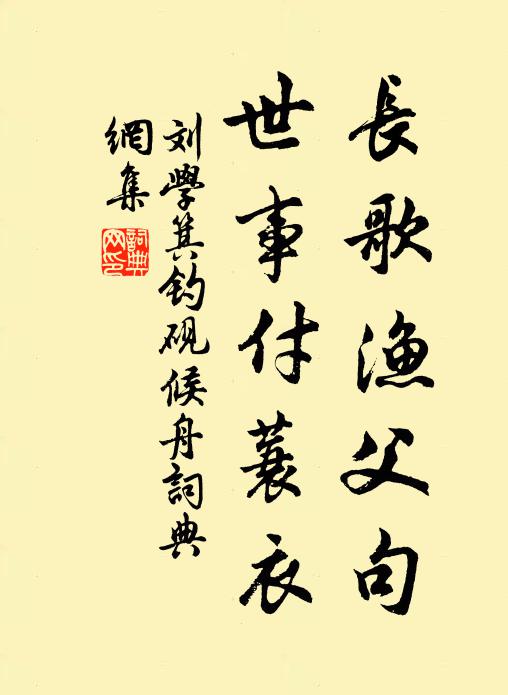 長歌漁父句
世事付蓑衣
刘學箕钓硯候舟詞典
網集
詞典
网印